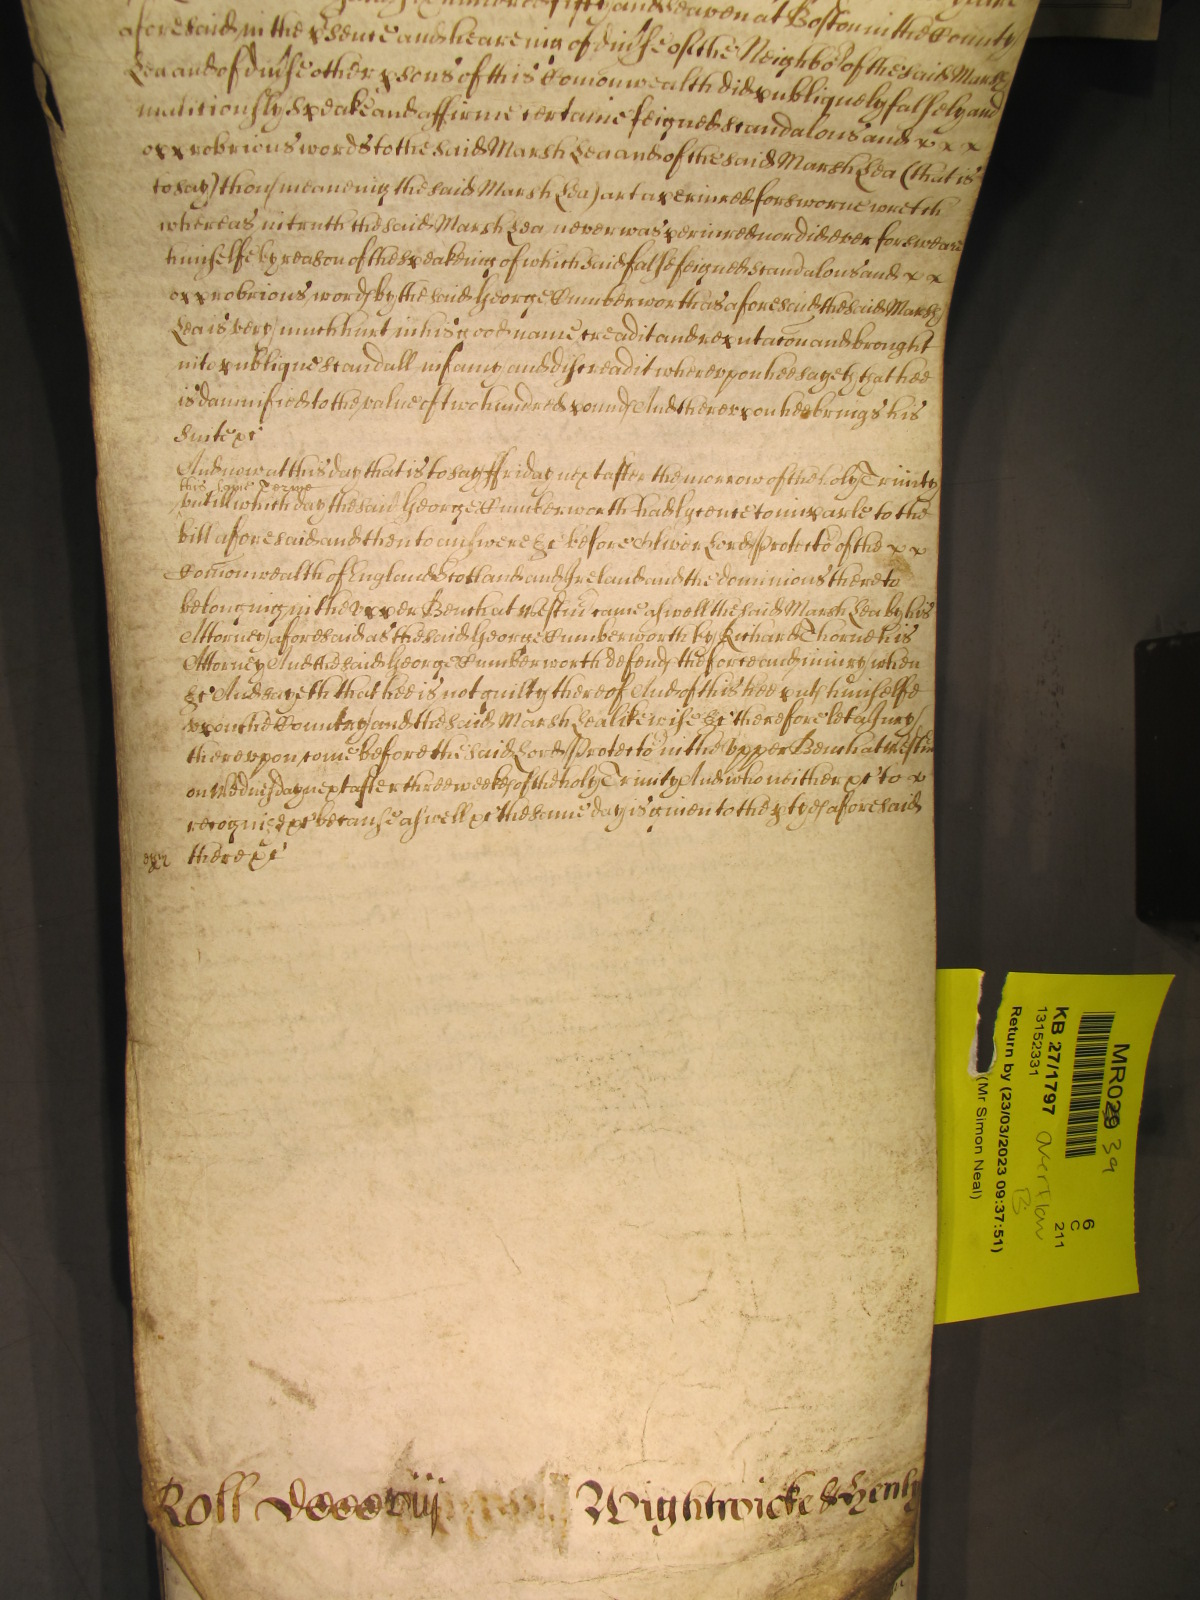 and Seaven at Boston in the County
aforesaid in the psence and heareing of divse of the Neighbo' of the said Marsh
Lea and of divse other psons of this Comonwealth did publiquely falsely and
malitiously speake and affirme certaine feigned scandalous and x x x
opprobrious words to the said Marsh Lea and of the said Marsh Lea (that is
to say) thou (meaneing the said Marsh Lea) art a periured forsworne wretch
whereas in truth the said Marsh Lea never was periured nor did ever forsweare
himselfe by reason of the speakeing of which said false feigned scandalous and x x
opprobrious words by the said George Cumberworth as aforesaid the said Marsh
Lea is very much hurt in his good name creadit and reputacon and brought
into publique scandall infamy and discreadit whereupon hee sayeth that hee
is damnified to the value of two hundred pounds And thereupon hee brings his
suite &c
And now at this day that is to say ffriday next after the morrow of the holy Trinity
this same Terme
untill which day the said George Cumberworth had lycence to imparle to the
bill aforesaid and then to answere &c before Oliver Lord Protecto' of the x x
Comonwealth of England Scotland and Ireland and the dominions thereto
belonging in the upper Bench at Westm' came aswell the said Marsh Lea by his
Attorney aforesaid as the said George Cumberworth by Richard Thorne his
Attorney And the said George Cumberworth defends the force and iniury when
&c And sayeth that hee is not guilty thereof And of this hee puts himselfe
upon the Country and the said Marsh Lea likewise &c therefore let a Jury
thereupon come before the said Lord Protecto' in the Upper Bench at Westm'
on Wednesday next after three weekes of the holy Trinity And who neither &c to x
recognize &c because aswell &c the same day is given to the ptyes aforesaid
there &c
Roll
Wightwicke & Henly
MR029 39
KB 27/1797
13152331
Return by (23/03/2023 09:37:51)
(Mr Simon Neal)
6
C
211
overflow